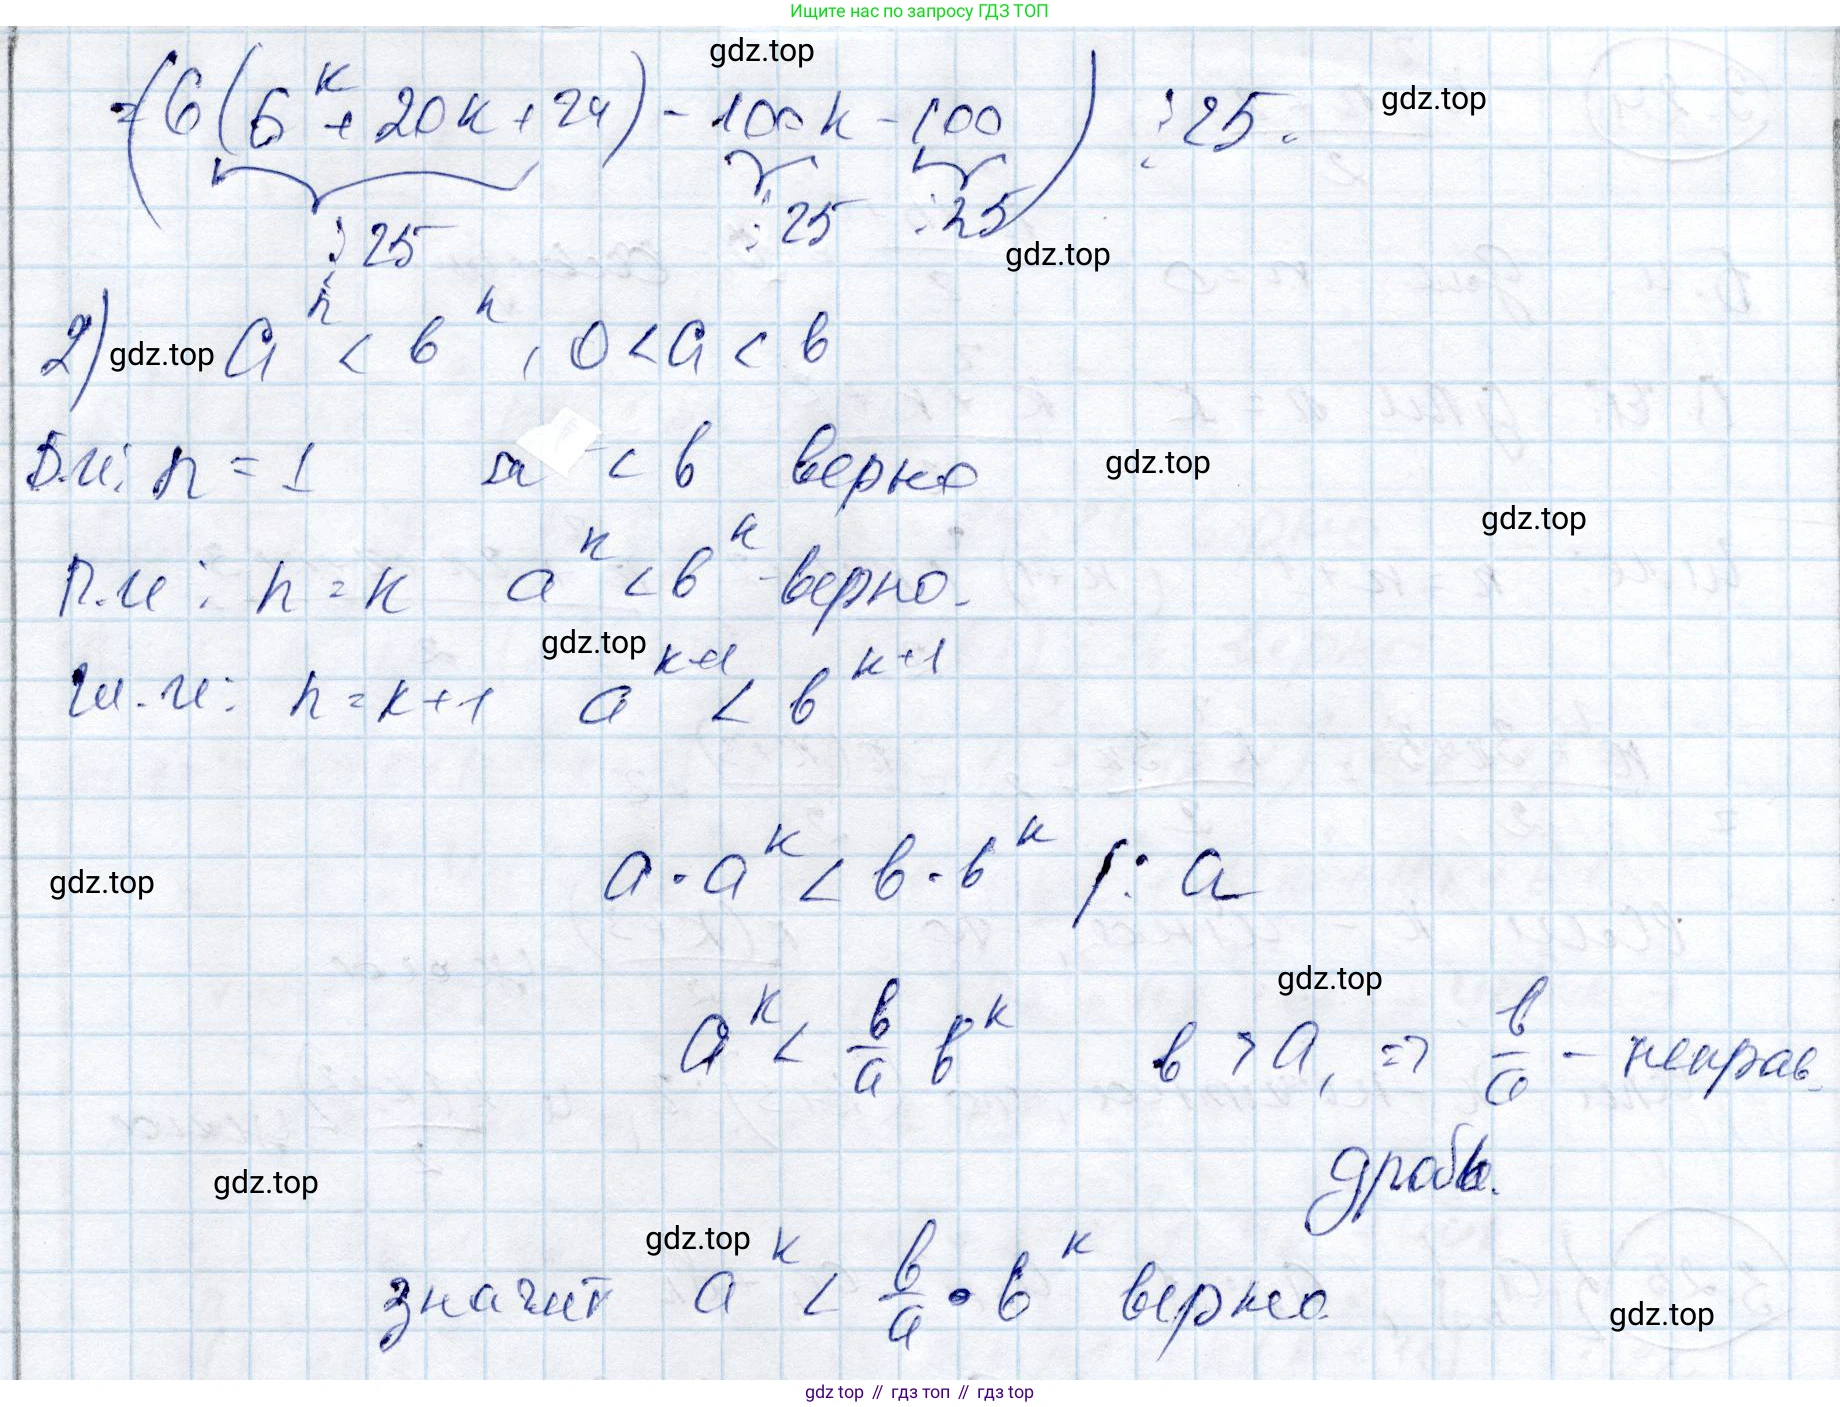 Ищите нас по запросу ГДЗ ТОП
gdz.top
= (6(6^k + 20k + 24) - 100k - 100) ⋮ 25.
gdz.top
⋮ 25 ⋮ 25 ⋮ 25
gdz.top
2) a^n < b^n, 0 < a < b
gdz.top
Б.И: n = 1 a < b верно
gdz.top
gdz.top
П.И: n = k a^k < b^k - верно.
gdz.top
Ш.И: n = k+1 a^{k+1} < b^{k+1}
a · a^k < b · b^k /: a
gdz.top
gdz.top
a^k < b/a b^k b > a, => b/a - неправ.
дробь.
gdz.top
gdz.top
значит a^k < b/a · b^k верно
gdz.top
gdz top // гдз топ // гдз top